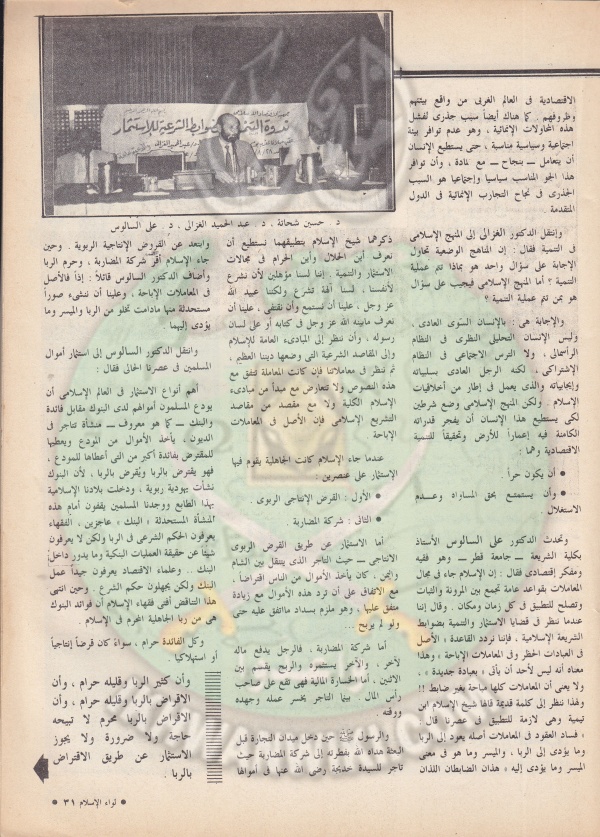 ندوة التنمية والضوابط الشرعية للاستثمار
د. حسين شحاتة، د. عبد الحميد الغزالى، د. على السالوس
الاقتصادية فى العالم الغربى من واقع بيئتهم
وظروفهم. كما هناك أيضاً سبب جذرى لفشل
هذه المحاولات الإنمائية، وهو عدم توافر بيئة
اجتماعية وسياسية مناسبة، حتى يستطيع الإنسان
أن يتعامل ــ بنجاح ــ مع المادة، وأن توافر
هذا الجو المناسب سياسيا وإجتماعيا هو السبب
الجذرى فى نجاح التجارب الإنمائية فى الدول
المتقدمة.
وإنتقل الدكتور الغزالى إلى المنهج الإسلامى
فى التنمية فقال: إن المناهج الوضعية تحاول
الإجابة على سؤال واحد هو بماذا تتم عملية
التنمية؟ أما المنهج الإسلامى فيجيب على سؤال
هو بمن تتم عملية التنمية؟
والإجابة هى: بالإنسان السوى العادى،
وليس الإنسان التحليلى النظرى فى النظام
الرأسمالى، ولا الترس الاجتماعى فى النظام
الإشتراكى، لكنه الرجل العادى بسلبياته
وإيجابياته والذى يعمل فى إطار من أخلاقيات
الإسلام. ولكن المنهج الإسلامى وضع شرطين
لكى يستطيع هذا الإنسان أن يفجر قدراته
الكامنة فيه إعماراً للأرض وتحقيقاً للتنمية
الاقتصادية وهما:
● أن يكون حراً
● وأن يستمتع بحق المساواه وعدم
الاستغلال.
وتحدث الدكتور على السالوس الأستاذ
بكلية الشريعة ــ جامعة قطر ــ وهو فقيه
ومفكر إقتصادى فقال: إن الإسلام جاء فى مجال
المعاملات بقواعد عامة تجمع بين المرونة والثبات
وتصلح للتطبيق فى كل زمان ومكان. وقال إننا
عندما ننظر فى قضايا الاستثمار والتنمية بضوابط
الشريعة الإسلامية، فإننا نردد القاعدة «الأصل
فى العبادات الحظر وفى المعاملات الإباحة» وهذا
معناه أنه ليس لأحد أن يأتى «بعبادة جديدة»،
ولا يعنى أن المعاملات كلها مباحة بغير ضابط!!
ولهذا ننظر إلى كلمة قديمة قالها شيخ الإسلام ابن
تيمية وهى لازمة للتطبيق فى عصرنا قال:
«فساد العقود فى المعاملات أصله يعود إلى الربا
وما يؤدى إلى الربا، والميسر وما هو فى معنى
الميسر وما يؤدى إليه» هذان الضابطان اللذان
ذكرهما شيخ الإسلام بتطبيقهما نستطيع أن
نعرف أين الحلال وأين الحرام فى مجالات
الاستثمار والتنمية. إننا لسنا مؤهلين لأن نشرع
لأنفسنا، لسنا آلهة تشرع ولكننا عبيد الله
عز وجل، علينا أن نستمع وأن نقتفى، علينا أن
نعرف مابينه الله عز وجل فى كتابه أو على لسان
رسوله، وأن ننظر إلى المبادىء العامة للإسلام
وإلى المقاصد الشرعية التى وضعها ديننا العظيم.
ثم ننظر فى معاملاتنا فإن كانت المعاملة تتفق مع
هذه النصوص ولا تتعارض مع مبدأ من مبادىء
الإسلام الكلية ولا مع مقصد من مقاصد
التشريع الإسلامى فإن الأصل فى المعاملات
الإباحة.
عندما جاء الإسلام كانت الجاهلية يقوم فيها
الإستثمار على عنصرين:
● الأول: القرض الإنتاجى الربوى.
● الثانى: شركة المضاربة.
أما الاستثمار عن طريق القرض الربوى
الانتاجى ــ حيث التاجر الذى ينتقل بين الشام
واليمن، كان يأخذ الأموال من الناس افتراضاً،
مع الاتفاق على أن ترد هذه الأموال مع زيادة
متفق عليها، وهو ملزم بسداد مااتفق عليه حتى
ولو لم يربح...
أما شركة المضاربة.. فالرجل يدفع ماله
لآخر، والآخر يستثمره والربح يقسم بين
الاثنين، أما الخسارة المالية فهى تقع على صاحب
رأس المال. بينما التاجر يخسر عمله وجهده
ووقته.
والرسول ﷺ حين دخل ميدان التجارة قبل
البعثة هداه الله بفطرته إلى شركة المضاربة حيث
تاجر للسيدة خديجة رضى الله عنها فى أموالها
وابتعد عن القروض الإنتاجية الربوية. وحين
جاء الإسلام أقر شركة المضاربة، وحرم الربا
وأضاف الدكتور السالوس قائلاً: إذاً فالأصل
فى المعاملات الإباحة، وعلينا أن ننشىء صوراً
مستحدثة منها مادامت تخلو من الربا والميسر وما
يؤدى إليهما.
وانتقل الدكتور السالوس إلى استثمار أموال
المسلمين فى عصرنا الحالى فقال:
أهم أنواع الاستثمار فى العالم الإسلامى أن
يودع المسلمون أموالهم لدى البنوك مقابل فائدة
والبنك ــ كما هو معروف ــ منشأة تتاجر فى
الديون، يأخذ الأموال من المودع ويعطيها
للمقترض بفائدة أكبر من التى أعطاها للمودع،
فهو يقترض بالربا ويُقرض بالربا، لأن البنوك
نشأت يهودية ربوية، ودخلت بلادنا الإسلامية
بهذا الطابع ووجدنا المسلمين يقفون أمام هذه
المنشأة المستحدثة «البنك» عاجزين، الفقهاء
يعرفون الحكم الشرعى فى الربا ولكن لا يعرفون
شيئاً عن حقيقة العمليات البنكية وما يدور داخل
البنك.. وعلماء الاقتصاد يعرفون جيداً عمل
البنك ولكن يجهلون حكم الشرع. وحين انتهى
هذا التناقض أفتى فقهاء الإسلام أن فوائد البنوك
هى من ربا الجاهلية المحرم فى الإسلام.
وكل الفائدة حرام، سواءً كان قرضاً إنتاجياً
أو استهلاكيا.
وأن كثير الربا وقليله حرام، وأن
الاقراض بالربا وقليله حرام، وأن
الاقراض بالربا محرم لا تبيحه
حاجة ولا ضرورة ولا يجوز
الاستثمار عن طريق الاقتراض
بالربا.
● لواء الإسلام ٣١ ●